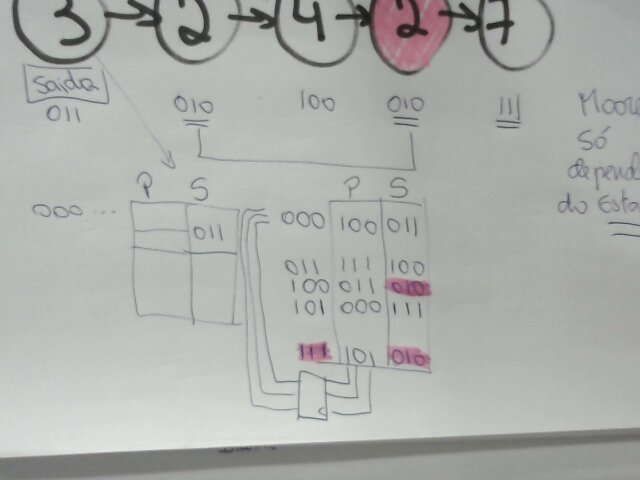 3 → 2 → 4 → 2 → 7
Saida
011 010 100 010 111
Moore
só
depend
do Esta
P S
000 ...
011
P S
000 100 011
011 111 100
100 011 010
101 000 111
111 101 010